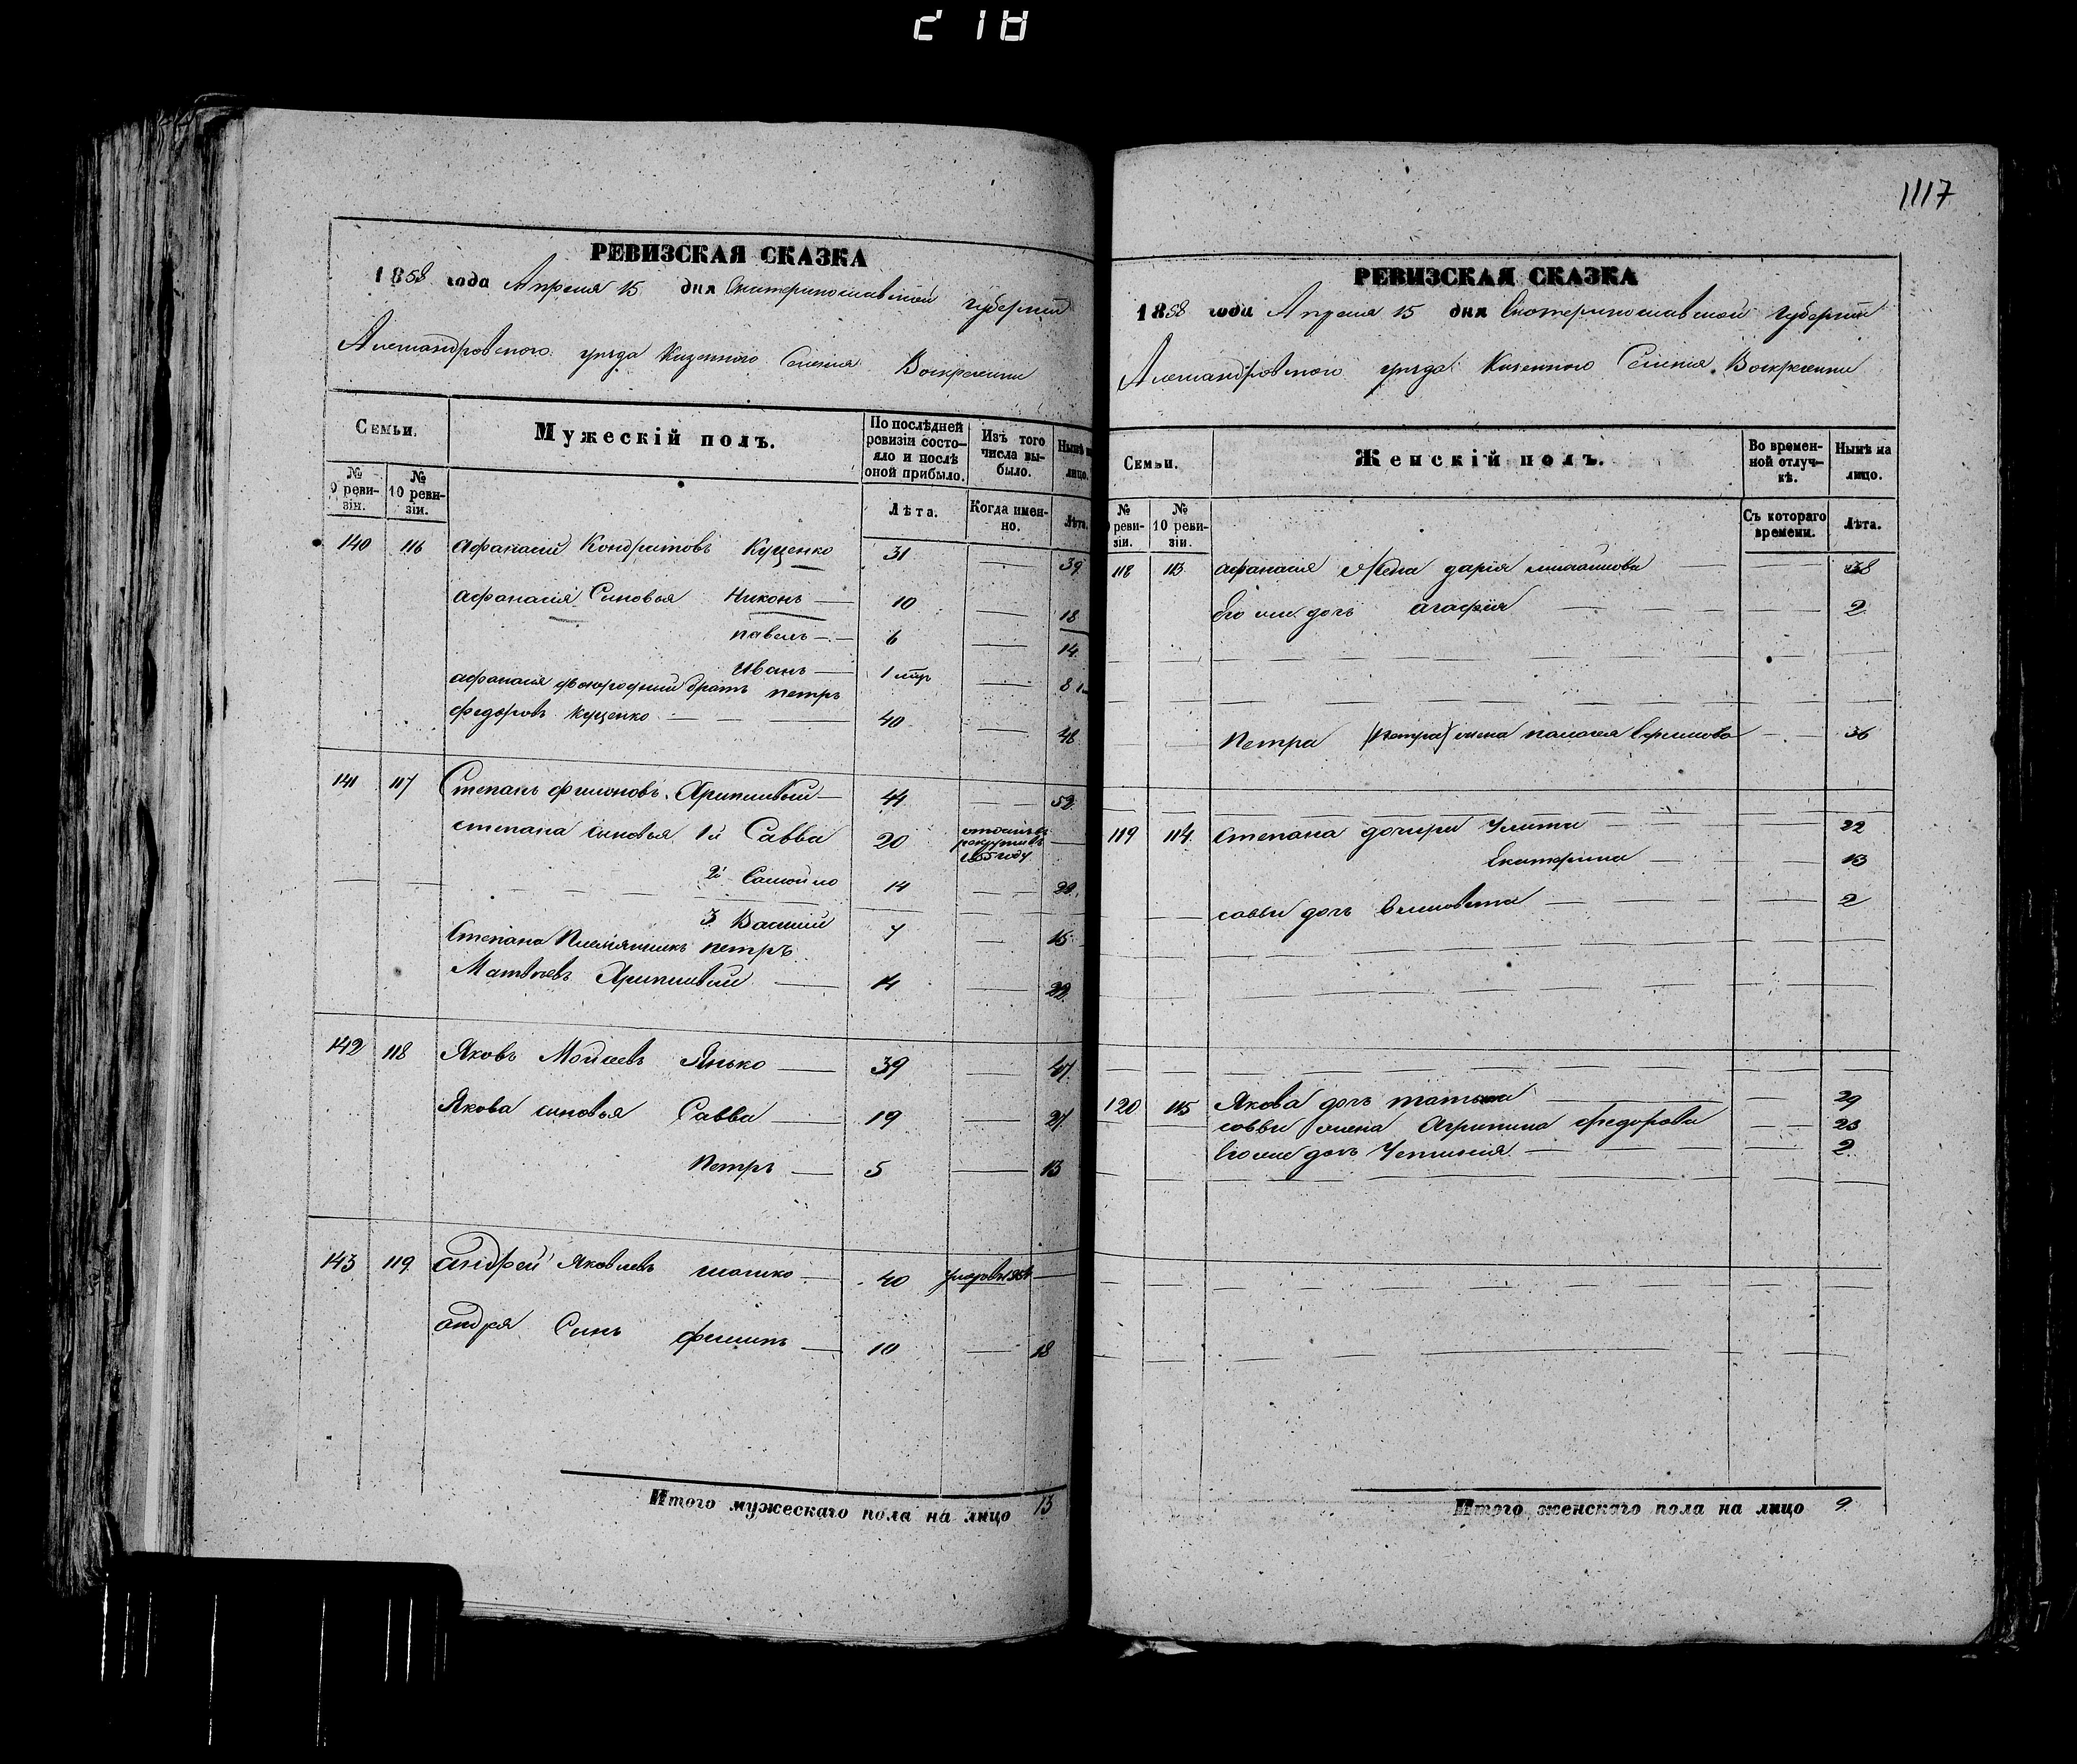 218
РЕВИЗСКАЯ СКАЗКА
1858 года Апреля 15 дня Екатеринославской губернии
Александровского уезда Казенного Селения Воскресенки
Семьи.
Мужескій полъ.
По послѣдней ревизіи состояло и послѣ оной прибыло.
Изъ того числа выбыло.
Нынѣ на лицо.
№ 9 ревизіи.
№ 10 ревизіи.
Лѣта.
Когда именно.
Лѣта.
140 116 Афанасій Кондратовъ Куценко 31 39
Афанасія Синовья Никонъ 10 18
павелъ 6 14
Иванъ 1 8
афанасія двоюродний братъ петръ
федоровъ Куценко 40 48
141 117 Степанъ филоновъ Хрипливый 44 52
степана сыновья 1й Савва 20 1855 году
2й Самойло 14 22
3 Василий 7 15
Степана Племянникъ петръ
Матвѣевъ Хрипливый 14 22
142 118 Яковъ Мойсеевъ Янько 39 47
Якова синовья Савва 19 27
Петръ 5 13
143 119 андрей Яковлевъ 40
андрея Синъ филипъ 10 18
Итого мужескаго пола на лицо 13
1117
РЕВИЗСКАЯ СКАЗКА
1858 года Апреля 15 дня Екатеринославской губернии
Александровского уезда Казенного Селения Воскресенки
Семьи.
Женскій полъ.
Во временной отлучкѣ.
Нынѣ на лицо.
№ 9 ревизіи.
№ 10 ревизіи.
Съ котораго времени.
Лѣта.
118 113 афанасия Жена дария 38
его же дочь агафия 2
Петра (Петра) жена Ефимова 36
119 114 степана дочери Улита 22
Екатерина 13
саввы дочь Елисовета 2
120 115 Якова дочь татьяна 29
саввы жена Агрипина федорова 23
Его же дочь Устиния 2
Итого женскаго пола на лицо 9